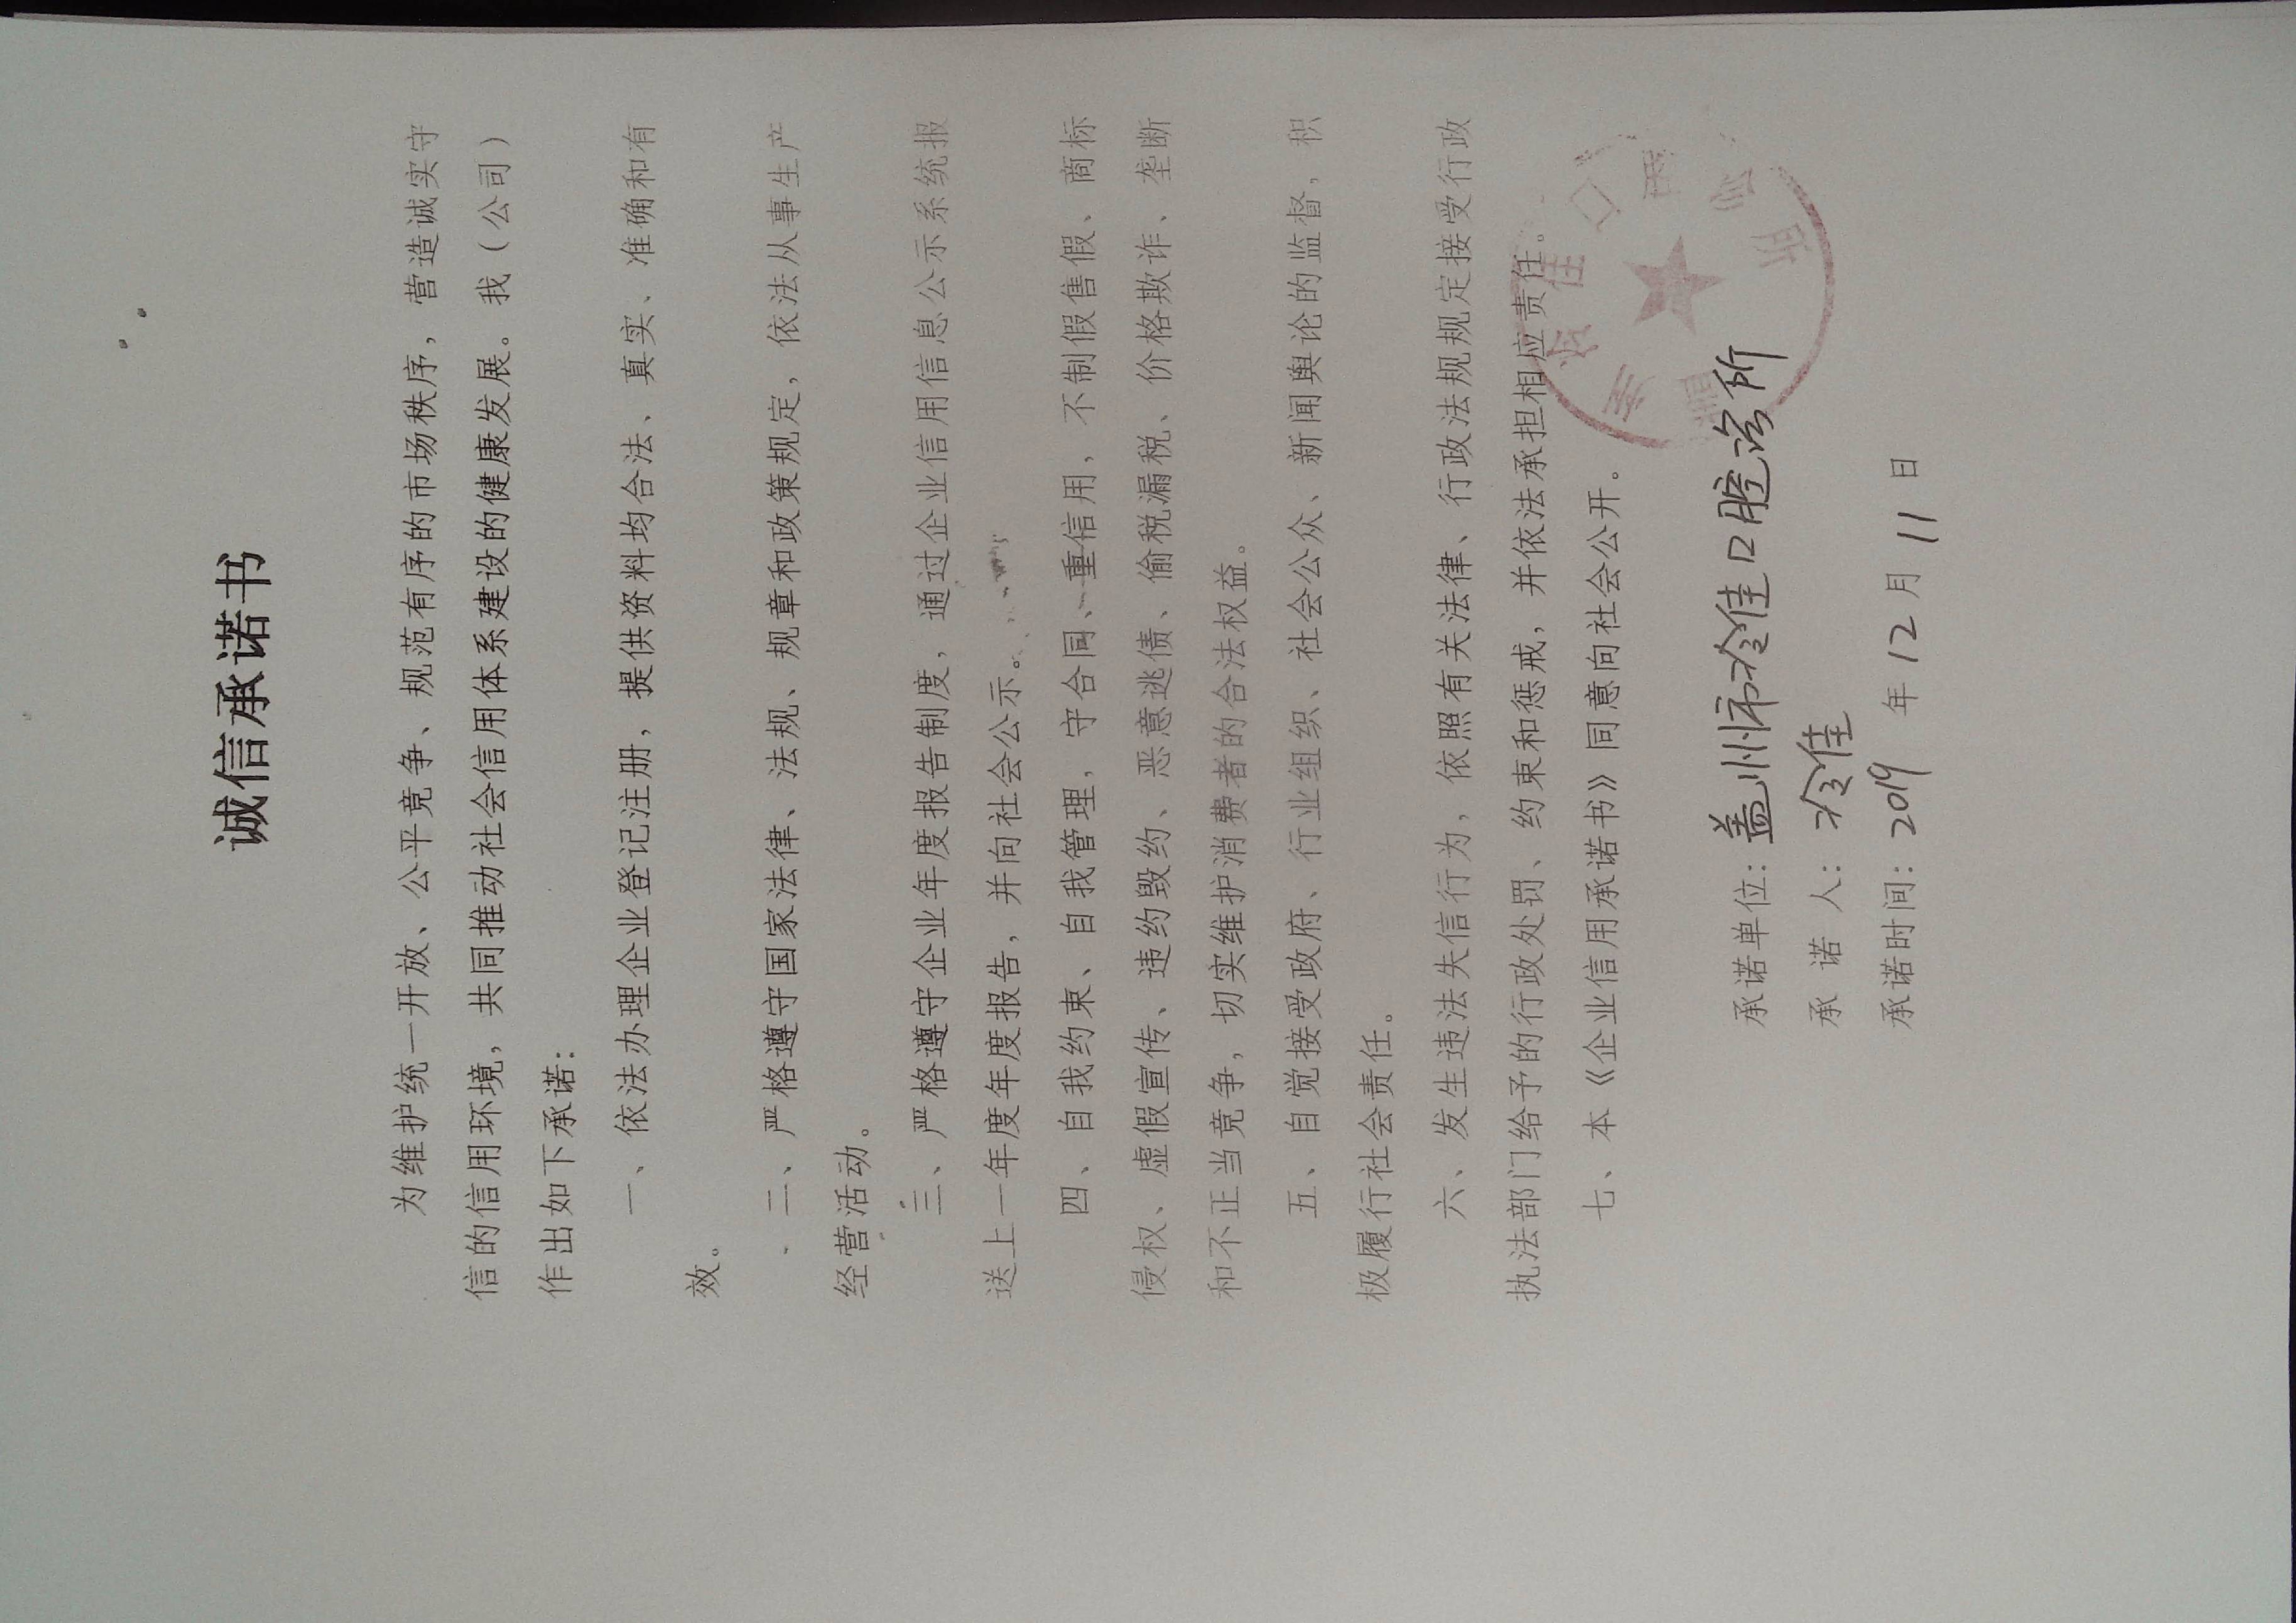 诚信承诺书
为维护统一开放、公平竞争、规范有序的市场秩序，营造诚实守
信的信用环境，共同推动社会信用体系建设的健康发展。我（公司）
作出如下承诺：
一、依法办理企业登记注册，提供资料均合法、真实、准确和有
效。
二、严格遵守国家法律、法规、规章和政策规定，依法从事生产
经营活动。
三、严格遵守企业年度报告制度，通过企业信用信息公示系统报
送上一年度年度报告，并向社会公示。
四、自我约束、自我管理，守合同、重信用，不制假售假、商标
侵权、虚假宣传、违约毁约、恶意逃债、偷税漏税、价格欺诈、垄断
和不正当竞争，切实维护消费者的合法权益。
五、自觉接受政府、行业组织、社会公众、新闻舆论的监督，积
极履行社会责任。
六、发生违法失信行为，依照有关法律、行政法规规定接受行政
执法部门给予的行政处罚、约束和惩戒，并依法承担相应责任。
七、本《企业信用承诺书》同意向社会公开。
承诺单位：盖州市冷佳口腔诊所
承诺人：冷佳
承诺时间：2019年12月11日